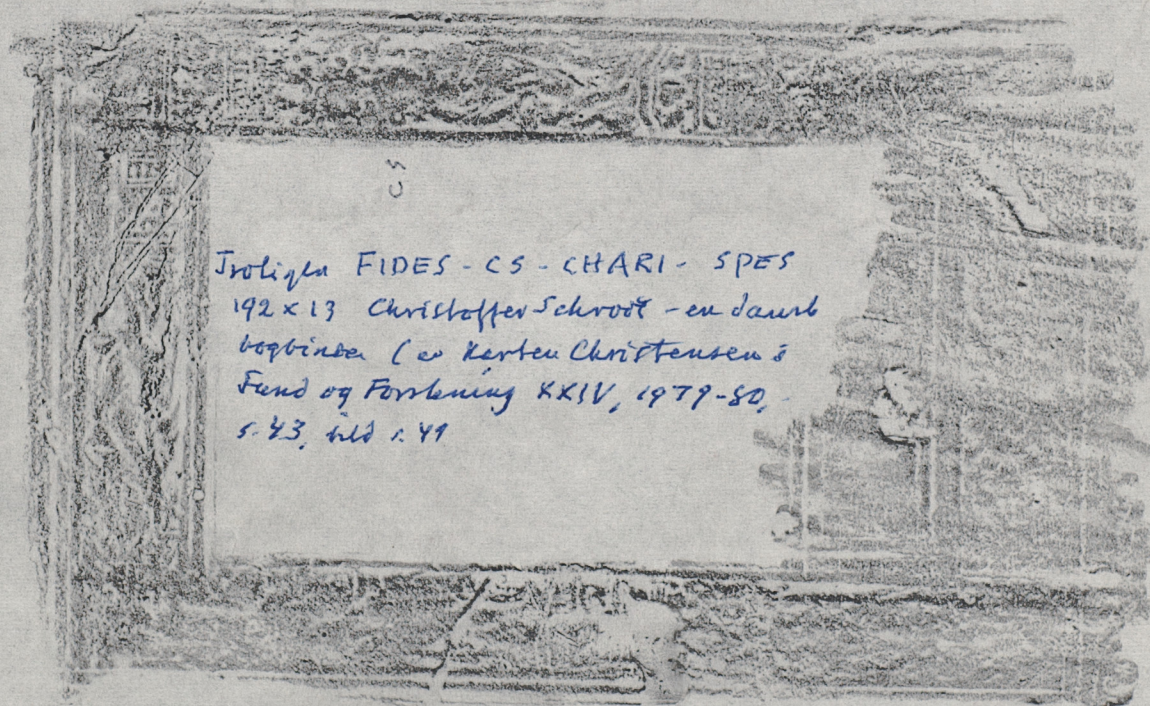 CS
Troligen FIDES - CS - CHARI - SPES
192 x 13 Christoffer Schroot - en dansk
bogbinder ( av Karten Christensen i
Fund og Forskning XXIV, 1979-80,
s. 43, bild s. 49